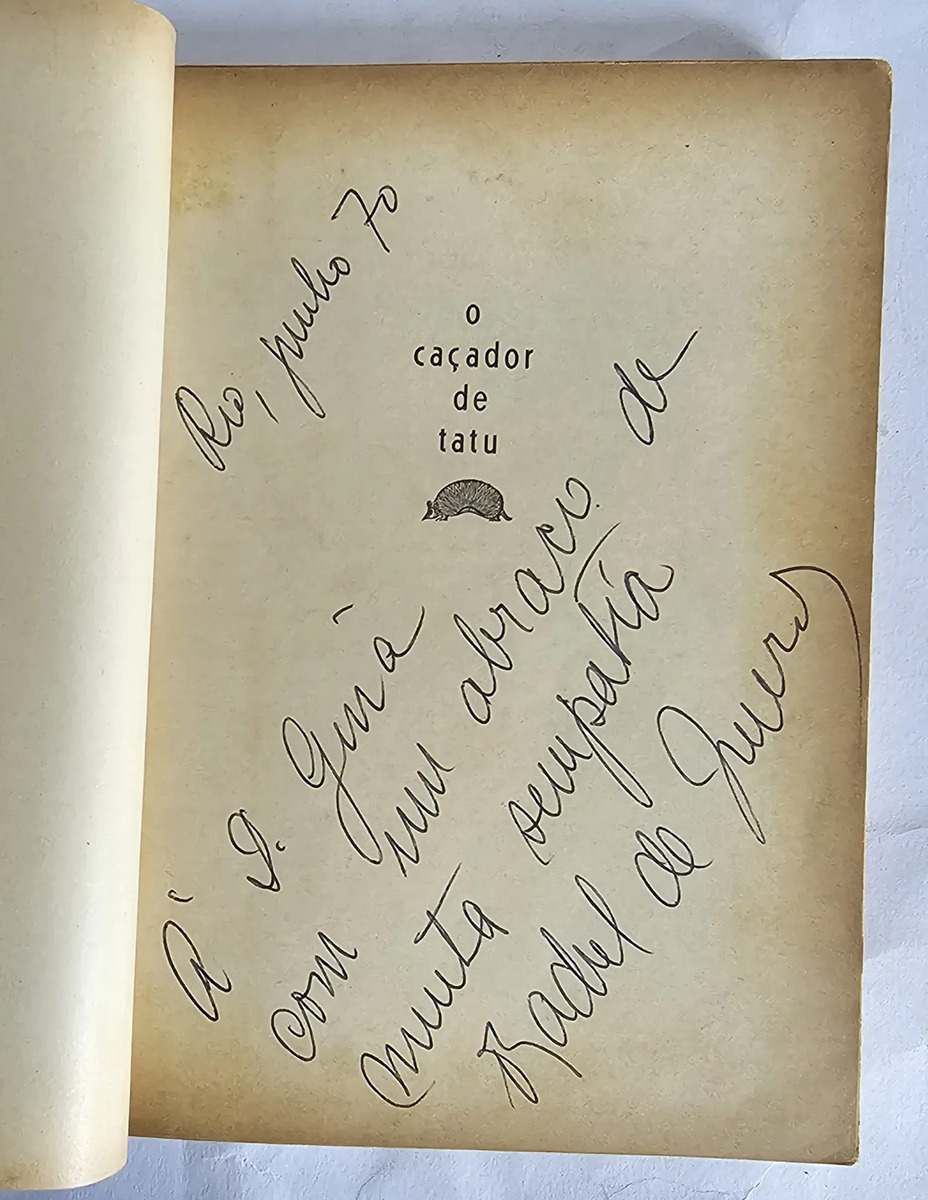 o
caçador
de
tatu
Rio, junho 70
À D. Gina
com um abraço de
muita simpatia
Rachel de Queiroz